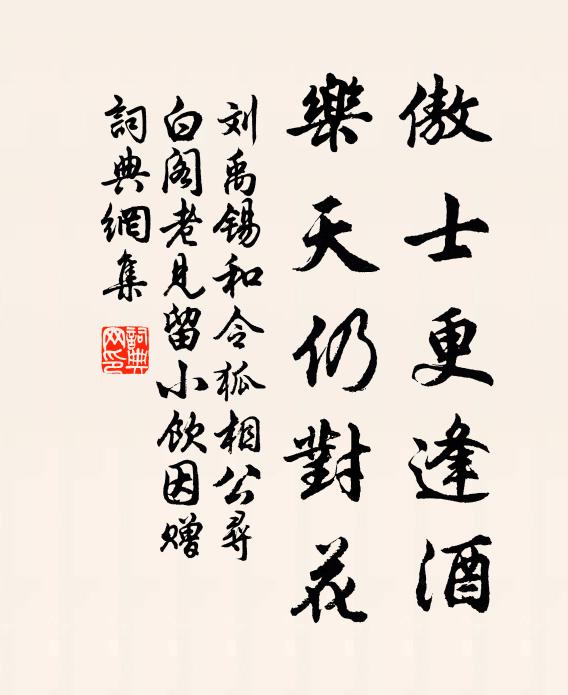 傲士更逢酒
樂天仍對花
刘禹锡和令狐相公尋
白阁老見留小飲因赠
詞典網集
詞典网印